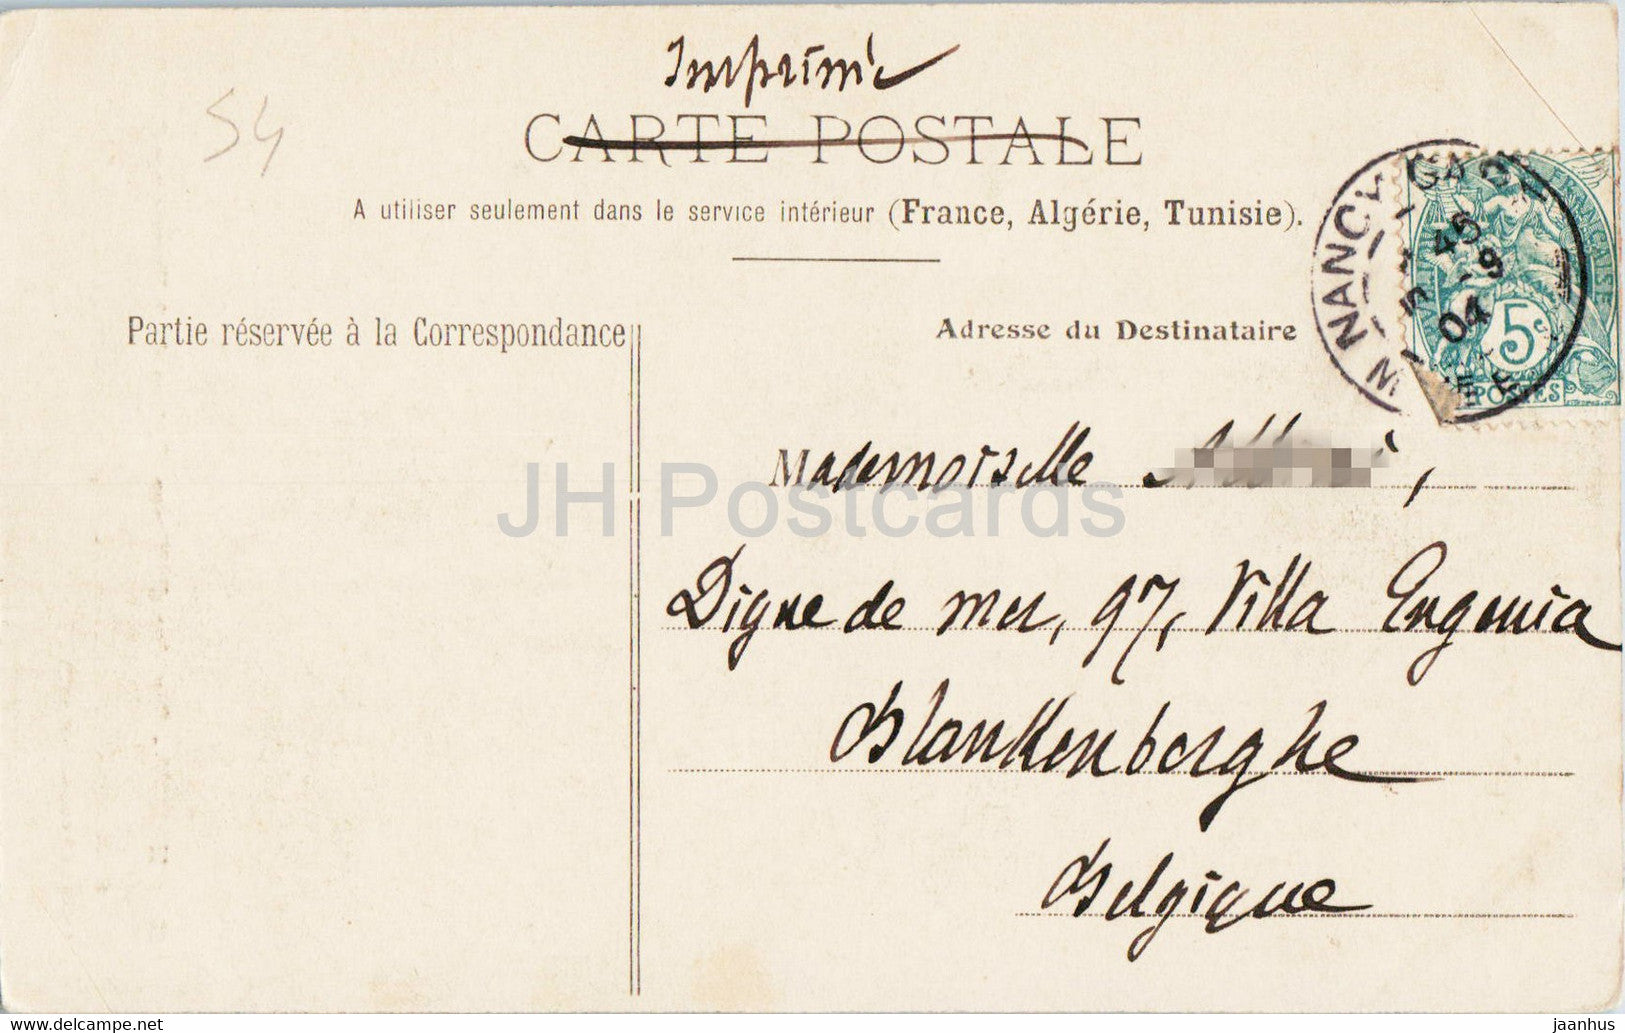 Imprimé
54
CARTE POSTALE
A utiliser seulement dans le service intérieur (France, Algérie, Tunisie).
NANCY GARE
45
-9
04
FRANÇAISE
5c
POSTES
Partie réservée à la Correspondance
Adresse du Destinataire
Mademoiselle
JH Postcards
Digue de mer, 97, Villa Eugenia
Blankenberghe
Belgique
hippostcard.com
jaanhus